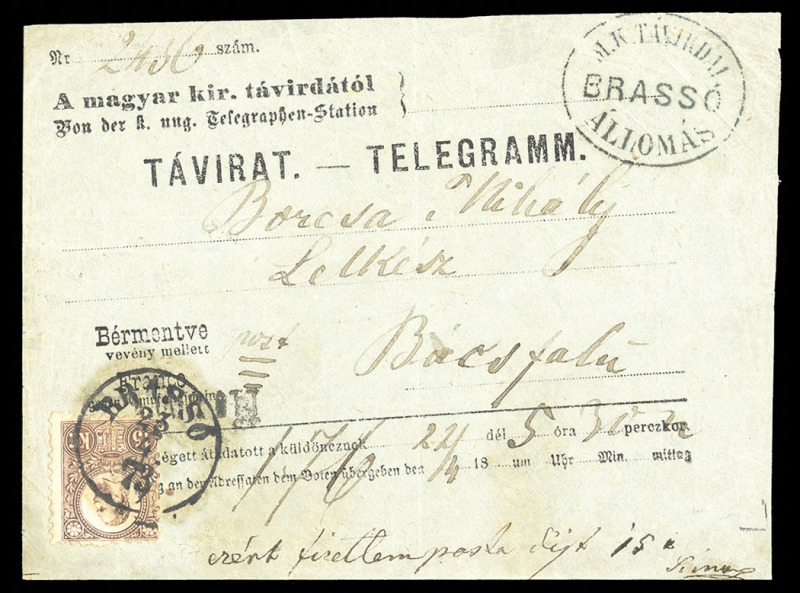 Nr 2456 szám.
M. K. TÁVIRDAI
BRASSÓ
ÁLLOMÁS
A magyar kir. távirdától
Von der k. ung. Telegraphen-Station
TÁVIRAT. — TELEGRAMM.
Borcsa Mihály
Lelkész
Bácsfalú
Bérmentve
vevény mellett
Franco
BRASSÓ
73
végett átadatott a küldöncznek 24/4 dél 5 óra 30 perczkor
an der Adressaten dem Boten übergeben den 18 um Uhr Min. mittag
ezért fizettem posta díjt 15 k